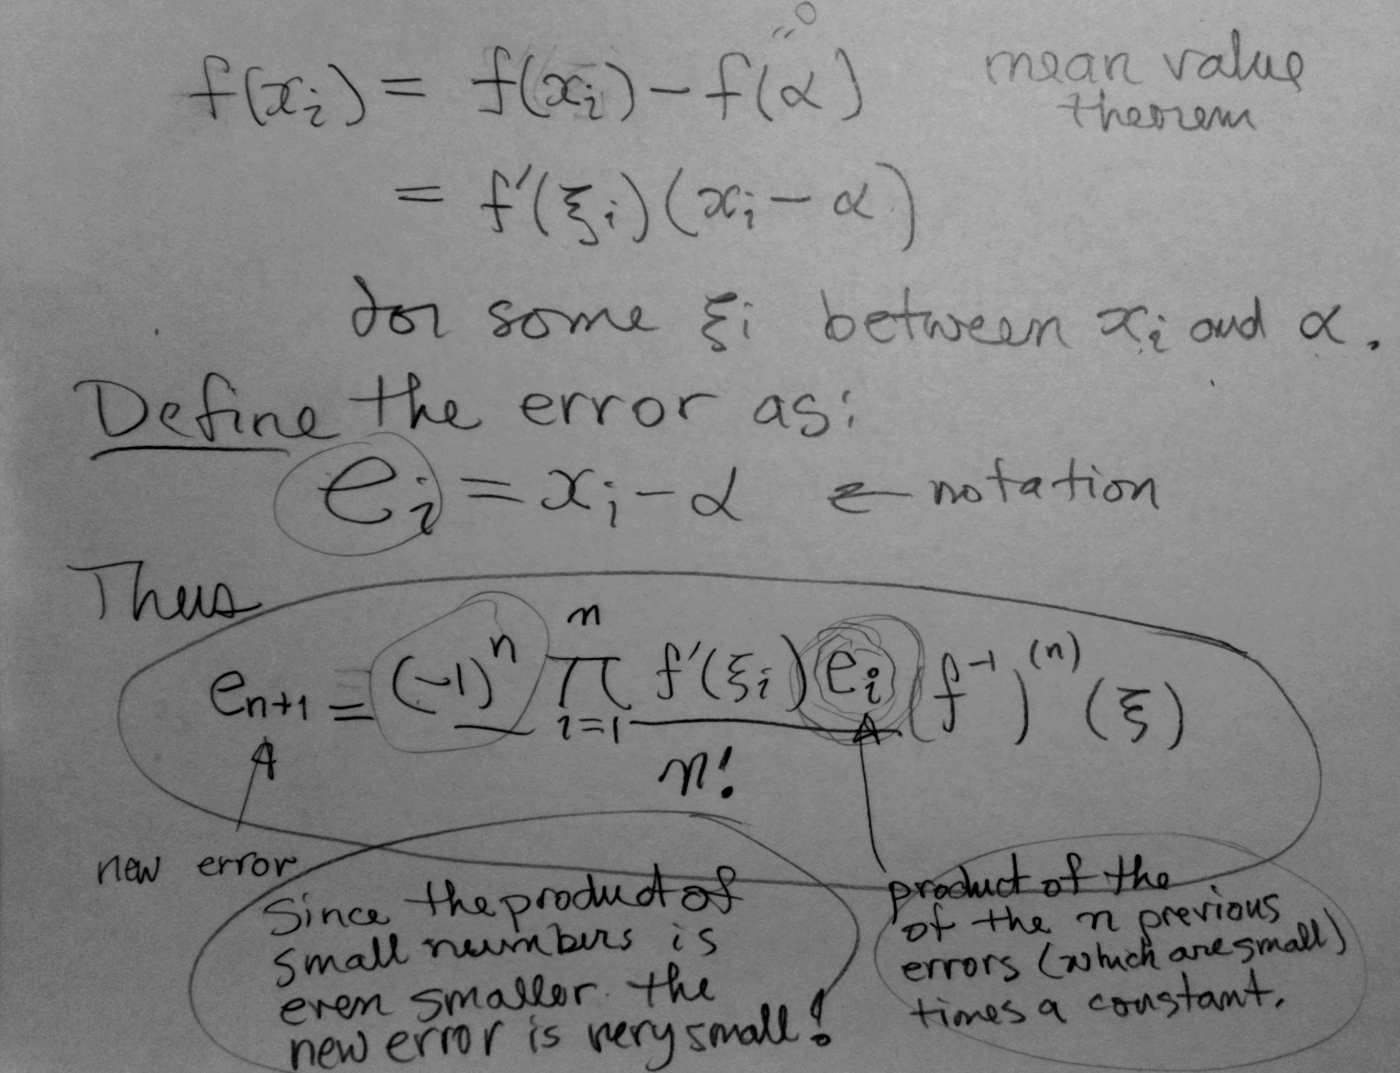 "0
f(xᵢ) = f(xᵢ) − f(α) mean value
theorem
= f′(ξᵢ)(xᵢ − α)
for some ξᵢ between xᵢ and α.
Define the error as:
eᵢ = xᵢ − α ← notation
Thus
eₙ₊₁ = (−1)ⁿ ∏ᵢ₌₁ⁿ f′(ξᵢ) eᵢ / n! (f⁻¹)⁽ⁿ⁾(ξ)
new error
Since the product of
small numbers is
even smaller. the
new error is very small!
product of the
of the n previous
errors (which are small)
times a constant.